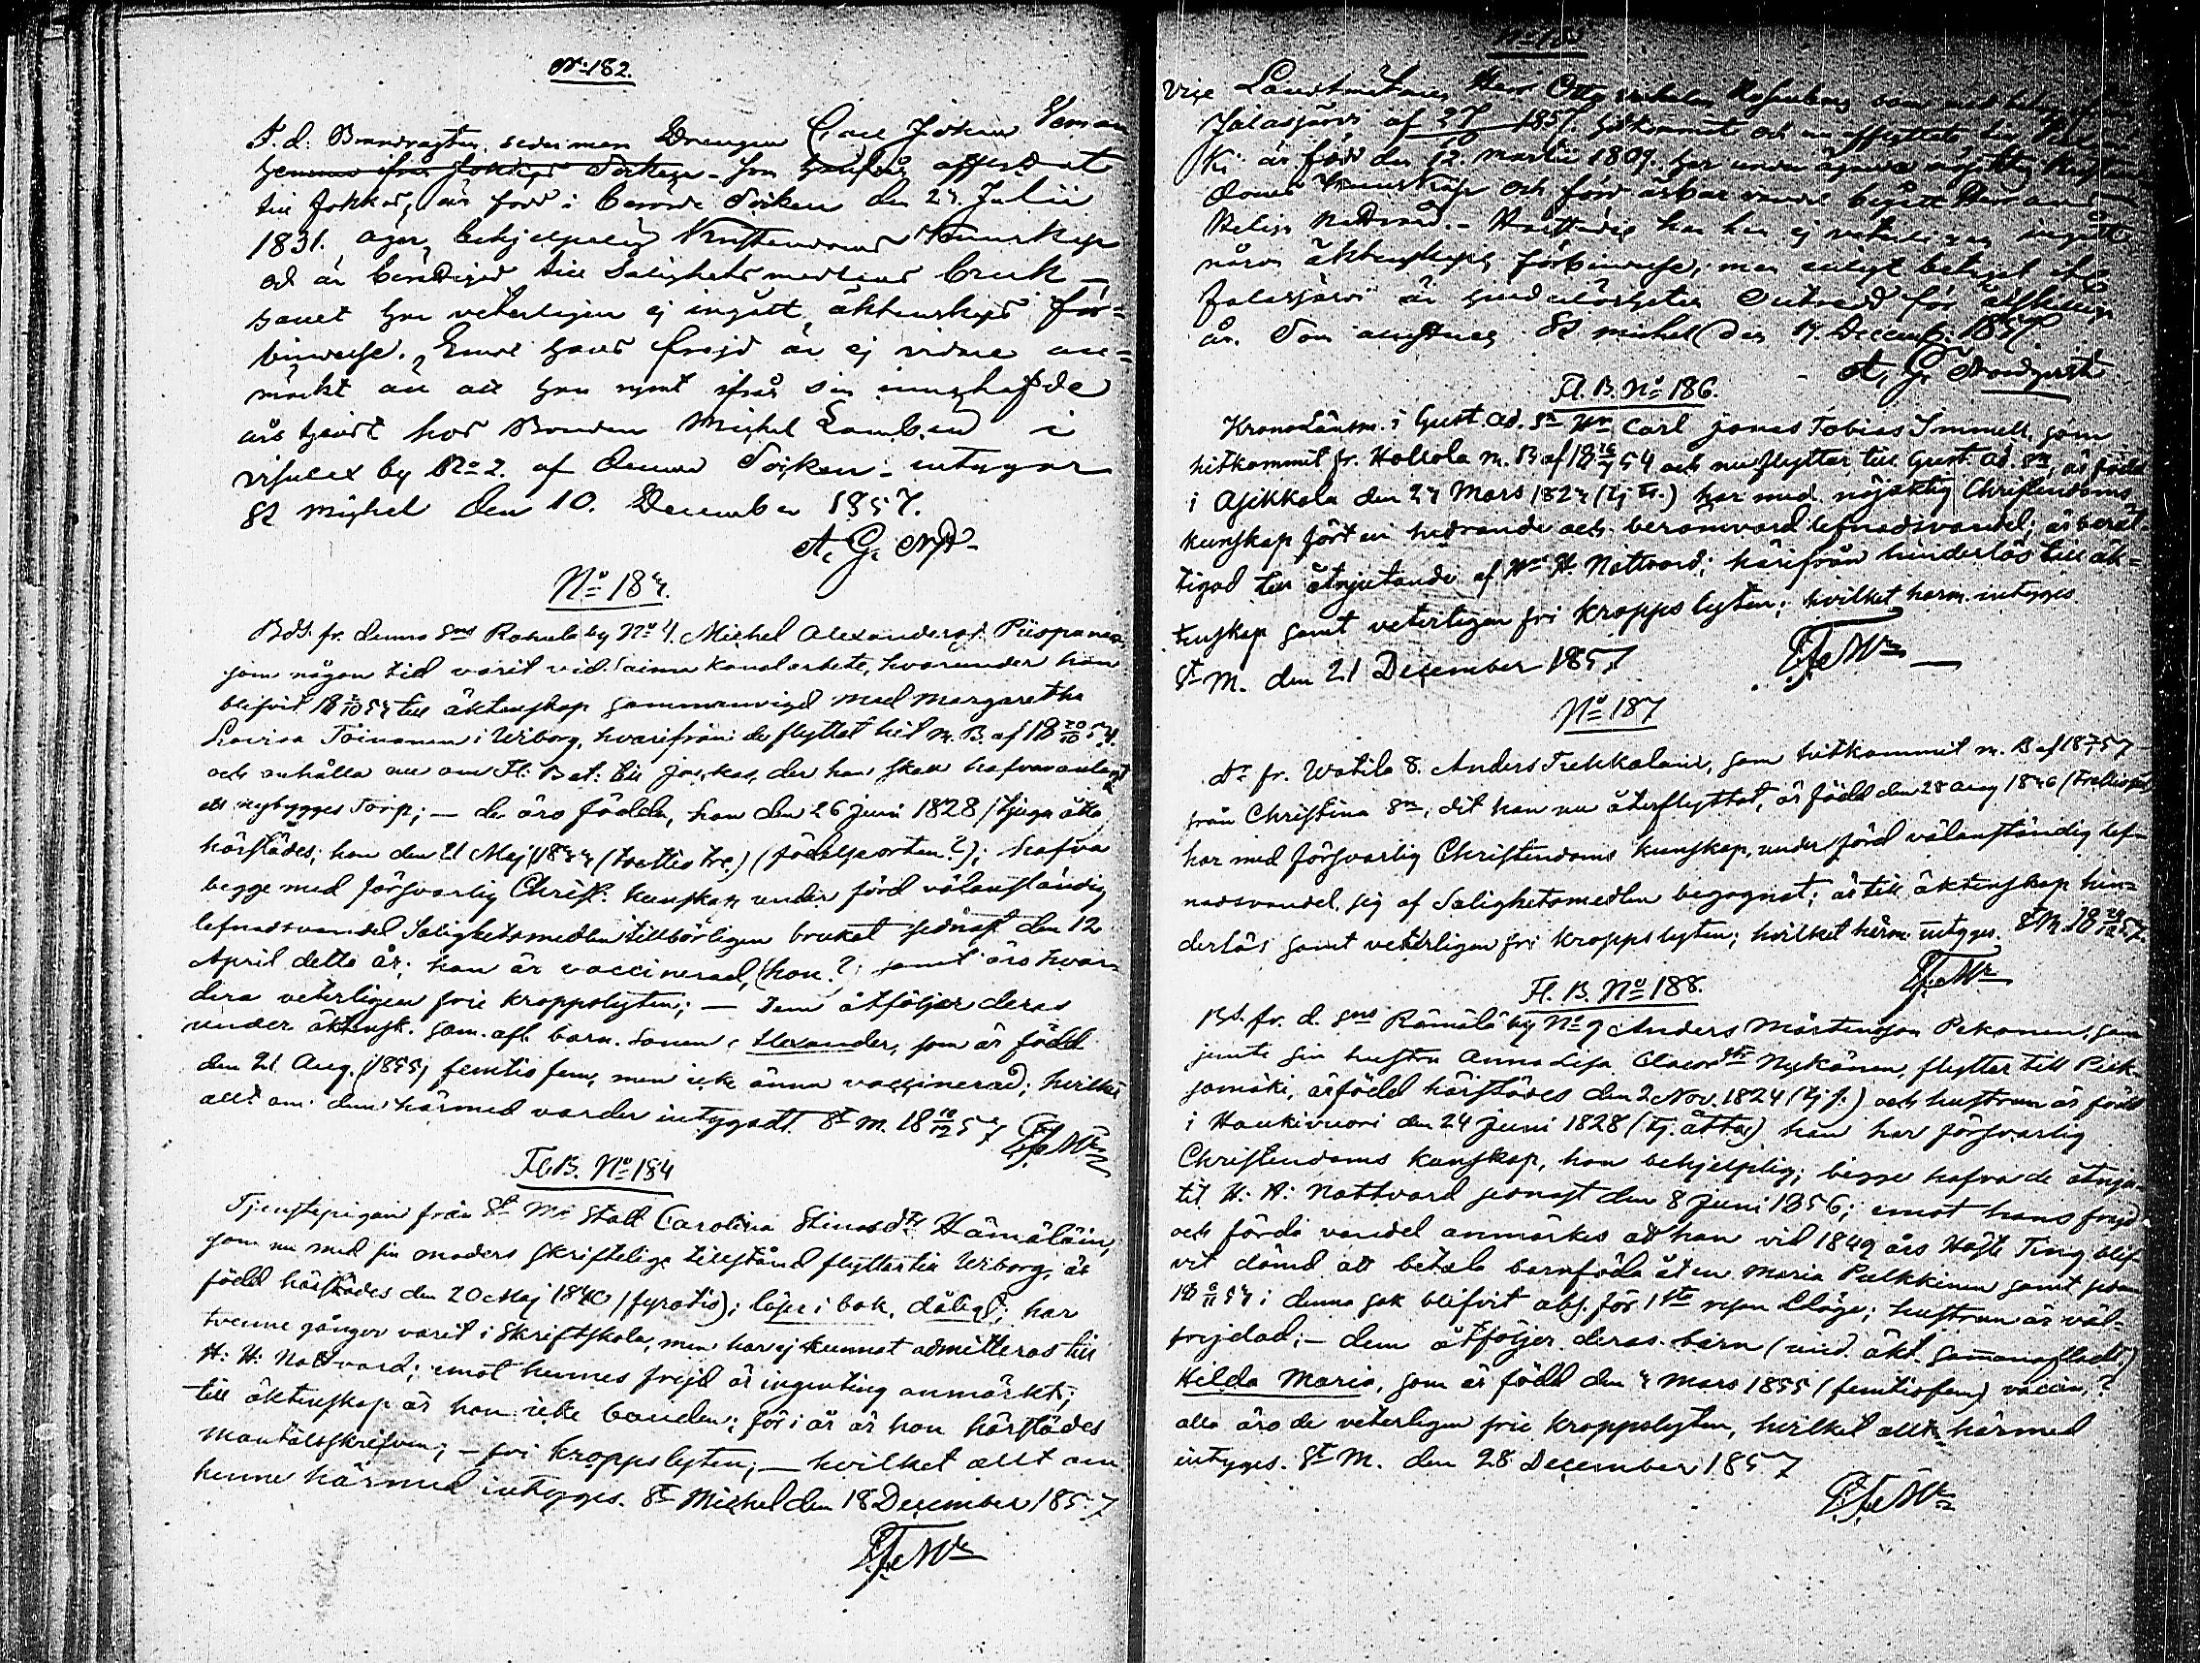 No 182.
F. d. Brandvagten, sedermera Drengen Carl Johan
till Jokkas, är född i denne Socken den 23. Julii
1831. äger behjelpelig Kristendoms Kunskap
och är berättigad till Salighetsmedlens bruk
samt har veterligen ej ingått äktenskaps för=
bindelse. Emot hans frejd är ej vidare an=
märkt än att han rymt ifrån sin innehafde
års tjenst hos Bonden Michel i
by No 2. af denne Socken; intygar
St Michel den 10. December 1857.
A. G.
No 183.
Bds. fr. denna Sns Rahula by No 4. Michel Alexanders. Piispanen,
som någon tid varit vid Saima Kanalarbete, hvarunder han
blifvit till äktenskap sammanvigd med Margaretha
Lovisa Toivanen i Wiborg, hvarifrån de flyttat hit m. B. af 18 20/10 54.
och anhålla nu om Fl: Bet: till där han skall hafva
ett nybygges Torp; — de äro födde, han den 26 Juni 1828 (tjugu åtta)
härstädes; hon den 21 Maj 1833 (trettio tre) (födelseorten?); hafva
begge med försvarlig Christ. kunskap under förd välanständig
lefnadsvandel Salighetsmedlen tillbörligen brukat sednast den 12
April detta år; han är vaccinerad, (hon?) samt äro hvar=
dera veterligen frie kroppslyten; — Dem åtföljer deras
under äktensk. sam. afl. barn. Sonen Alexander, som är född
den 21. Aug. 1855; femtio fem, men icke ännu vaccinerad; hvilket
allt om dem härmed varder intygadt. St M. 18 10/12 57
Fl. B. No 184
Tjenstepigan från St Mi Stad Carolina Stinasdtr Hämäläin,
som nu med sin moders skriftliga tillstånd flyttar till Wiborg, är
född härstädes den 20 Maj 1840 (fyratio); läser i bok, dåligt; har
tvenne gånger varit i Skriftskola, men har ej kunnat admitteras till
H: H: Nattvard; emot hennes frejd är ingenting anmärkt;
till äktenskap är hon icke bunden; för i år är hon härstädes
mantalsskrifven; — fri kroppslyten; — hvilket allt om
henne härmed intygges. St Michel den 18 December 1857
Vice Landtmätaren Herr Otto Wilhelm Rosenberg som med betyg ifrån
Jalasjärvi af 1857. hitkommit och nu afflyttat till
Ki är född den 12. Martii 1809. har under ägande nöjaktig
doms Kunskap och förd ärbar vandel begått Herrans
Heliga Nattvard. - Härstädes har han ej veterligen ingått
någon äktenskaps förbindelse, men enligt betyget ifrån
Jalasjärvi är hinderlösheten för
år. Som St Michel den 19. Decemb. 1857.
A. G. Nordqvist
Fl. B. No 186.
KronoLänsm. i Gust. Ad. Sn Hr Carl Jonas Tobias Immell, som
hitkommit fr. Hollola m. B af 54 och nu flyttar till Gust. Ad. Sn, är född
i Asikkala den 23 Mars 1823 (tj tr.) har med nöjaktig Christendoms
kunskap fört en hedrande och berömvärd lefnadsvandel; är berät=
tigad till åtnjutande af H. H. Nattvard; härifrån hinderlös till äk=
tenskap samt veterligen fri kroppslyten; hvilket härm. intygges.
St M. den 21 December 1857
No 187
Dr fr. Watila 8. Anders Tuhkalain, som hitkommit m. B af 57
från Christina Sn, dit han nu återflyttat, är född den 28 Aug 1836 (trettiosex)
har med försvarlig Christendoms kunskap, under förd välanständig lef=
nadsvandel sig af Salighetsmedlen begagnat; är till äktenskap hin=
derlös samt veterligen fri kroppslyten; hvilket härm. intyges. St M. 18 57.
Fl. B. No 188.
Bd. fr. d. Sns Rämälä by No 9 Anders Mårtensson Pekonen, som
jemte sin hustru Anna Lisa Nykänen, flyttar till Piek=
sämäki, är född härstädes den 2 Nov. 1824 (tj f.) och hustrun är född
i Haukivuori den 24 Juni 1828 (tj. åtta) han har försvarlig
Christendoms kunskap, hon behjelplig; begge hafva de åtnju=
tit H: H: Nattvard sednast den 8 Juni 1856; emot hans frejd
och förda vandel anmärkes att han vid 1849 års Höste Ting blif=
vit dömd att betala barnföda åt en Maria Pulkkinen samt sedan
i denna sak blifvit abs. för 1sta resan Läge; hustrun är väl=
frejdad; — dem åtföljer deras barn (und. äkt. sammanaflade)
Hilda Maria, som är född den 3 Mars 1855 (femtiofem) vaccin.?
alla äro de veterligen frie kroppslyten, hvilket allt härmed
intyges. St M. den 28 December 1857